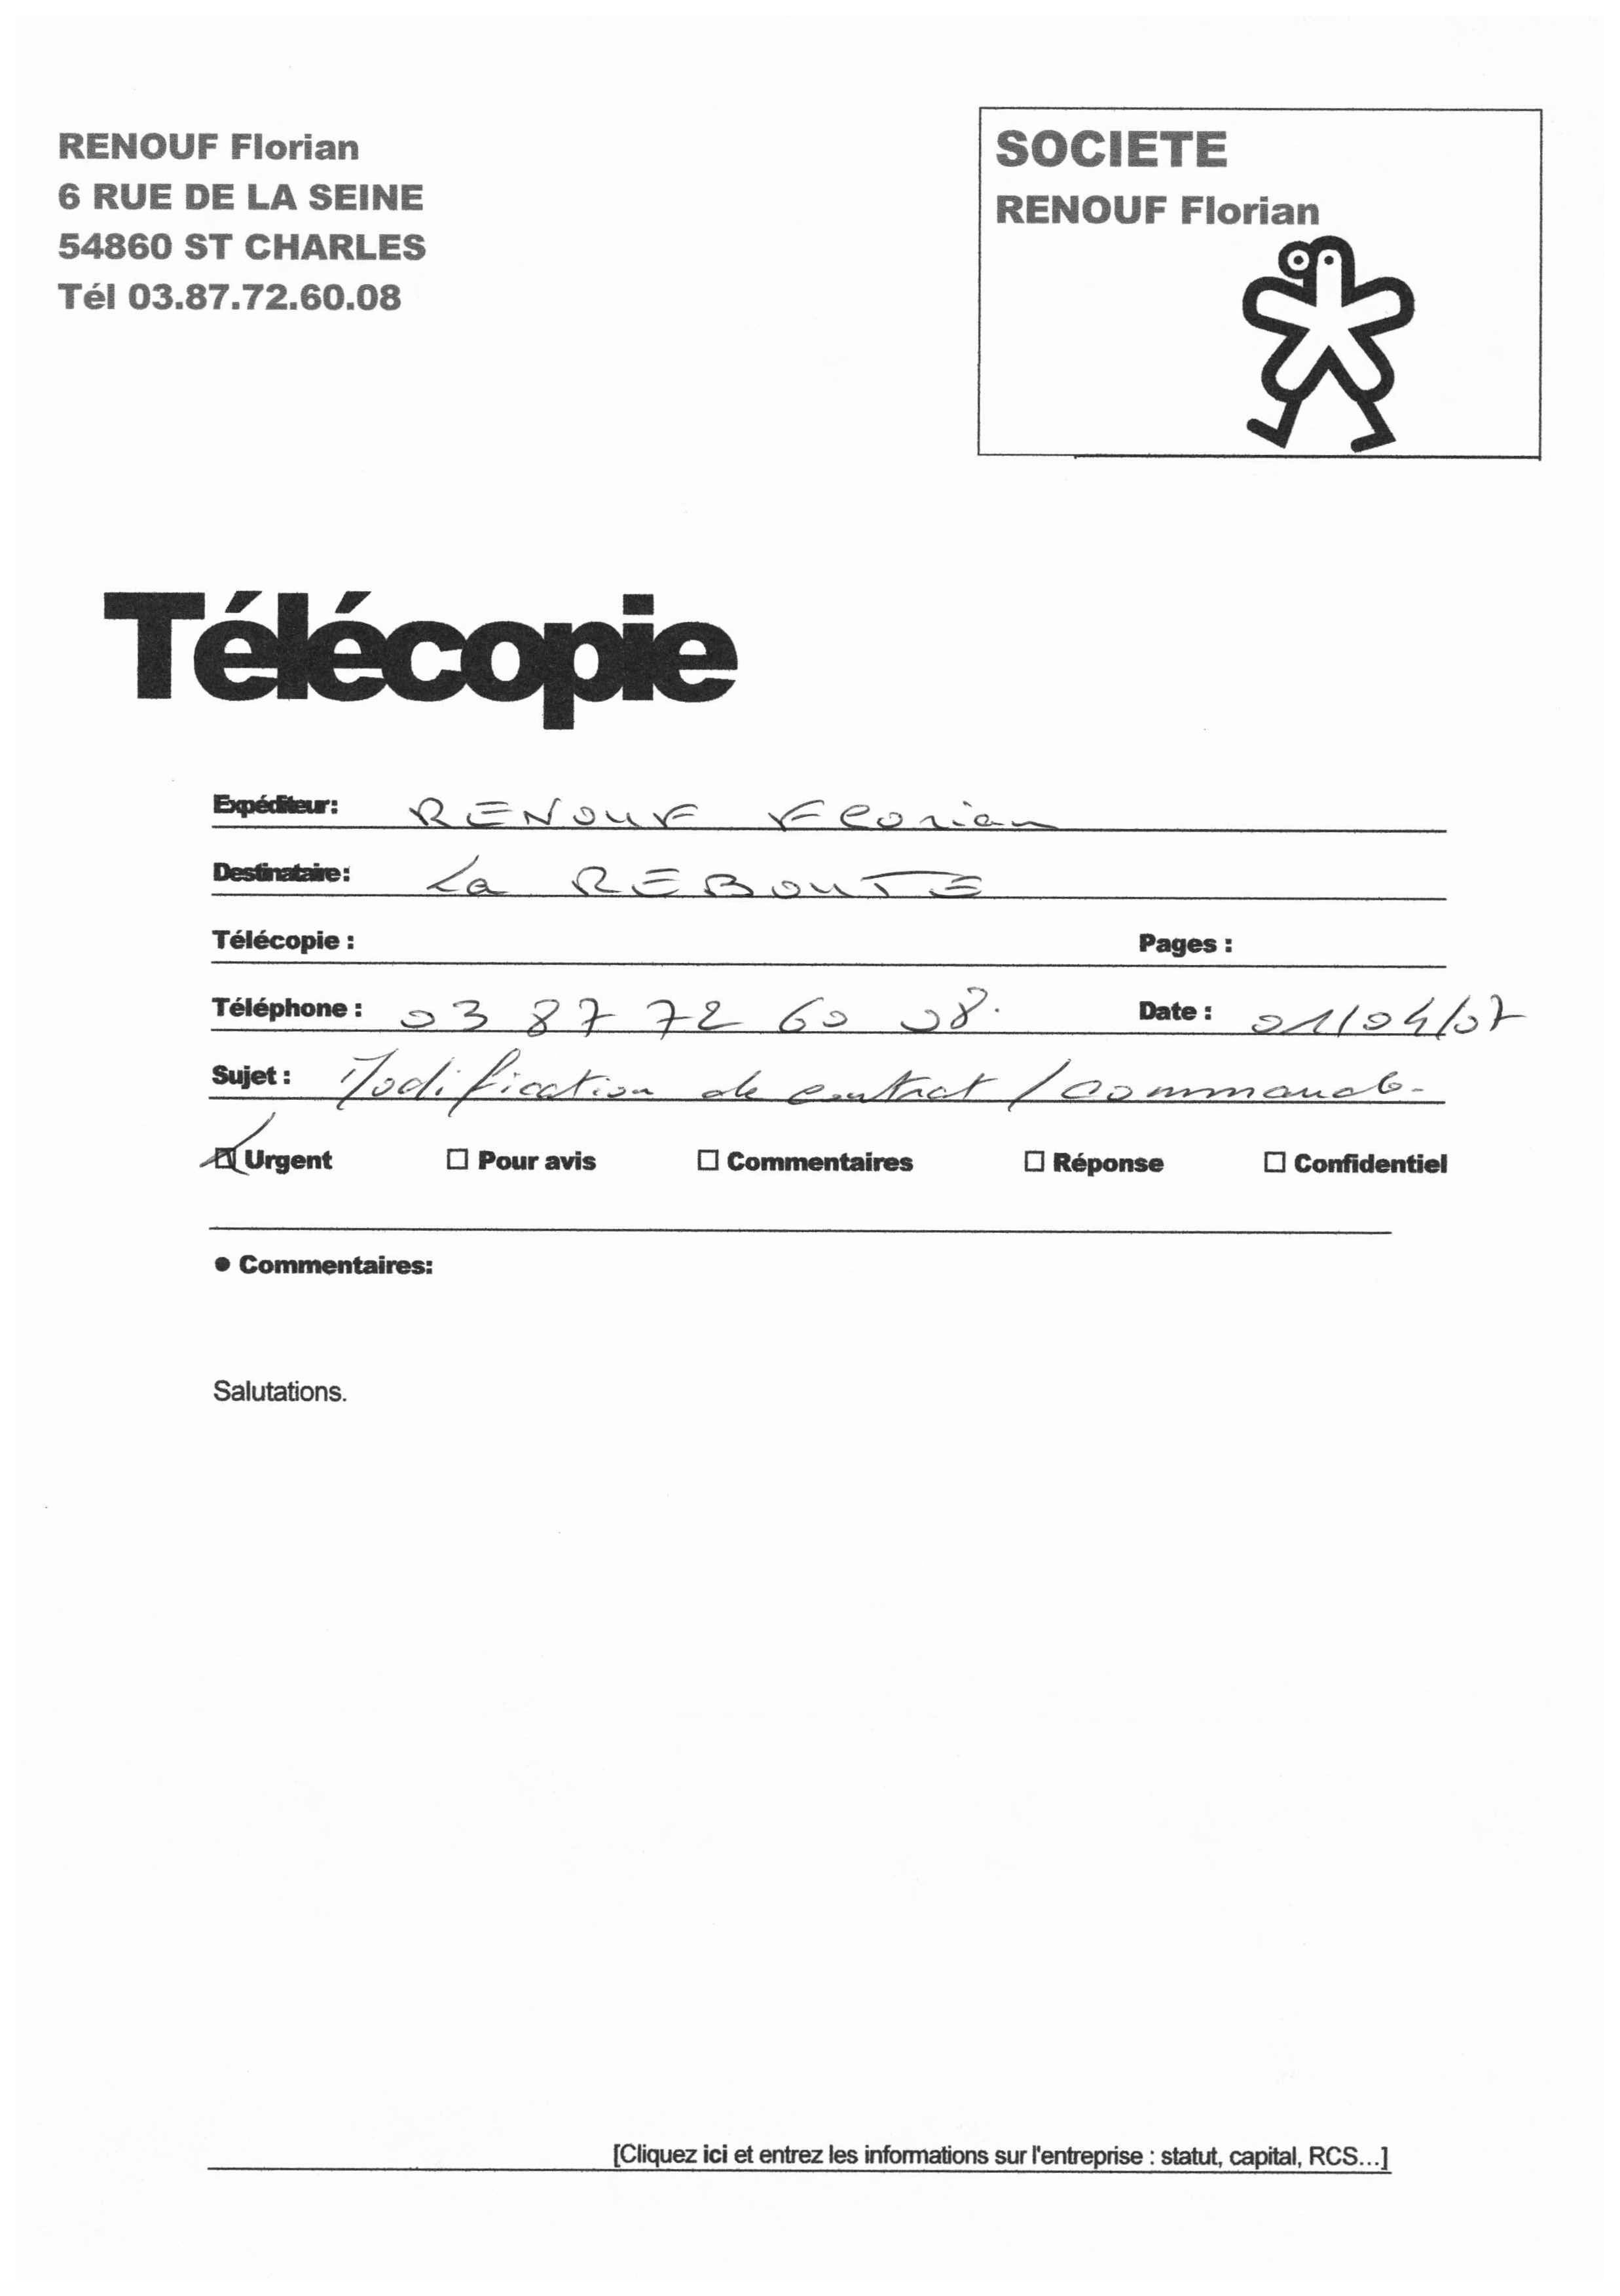 RENOUF Florian
6 RUE DE LA SEINE
54860 ST CHARLES
Tél 03.87.72.60.08
SOCIETE
RENOUF Florian
Télécopie
Expéditeur: RENOUF Florian
Destinataire: La REBOUTE
Télécopie : Pages :
Téléphone : 03 87 72 60 08. Date : 01/04/07
Sujet : Modification de contrat / commande
Urgent Pour avis Commentaires Réponse Confidentiel
• Commentaires:
Salutations.
[Cliquez ici et entrez les informations sur l'entreprise : statut, capital, RCS...]